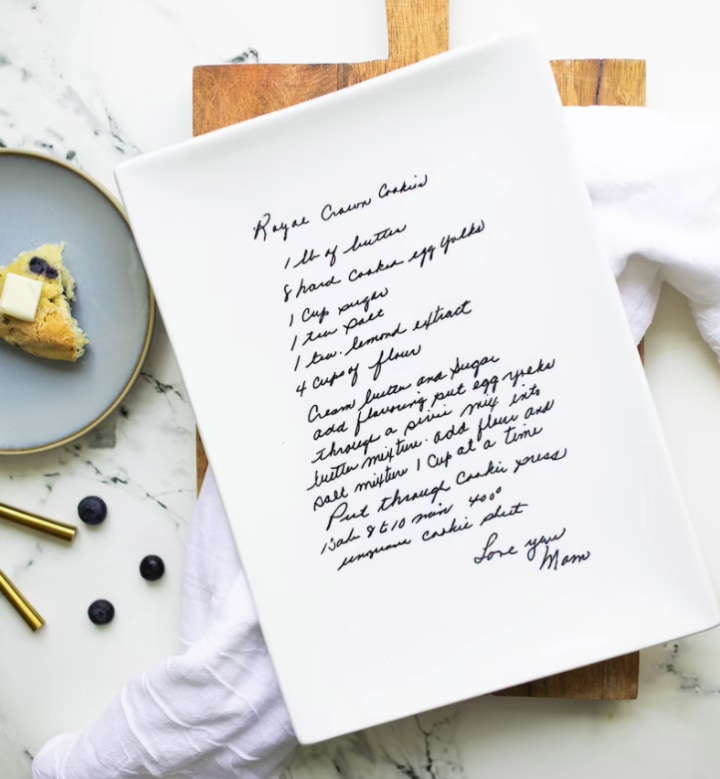 Royal Crown Cookies
1 lb of butter
8 hard cooked egg yolks
1 Cup sugar
1 tea salt
1 tea. lemond extract
4 Cups of flour
Cream butter and Sugar
add flavouring put egg yolks
through a sivie mix into
butter mixture. add flour and
salt mixture 1 Cup at a time
Put through Cookie press
Bake 8 to 10 min 400°
ungrease cookie sheet
Love you
Mom